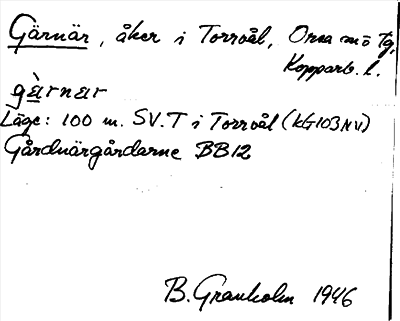 Gärnär, åker i Torrvål, Orsa
Kopparb. l.
gàrnar
Läge: 100 m. SV. T i Torrvål (kG103NV)
Gårdnärgårdarne BB12
B. Granholm 1946